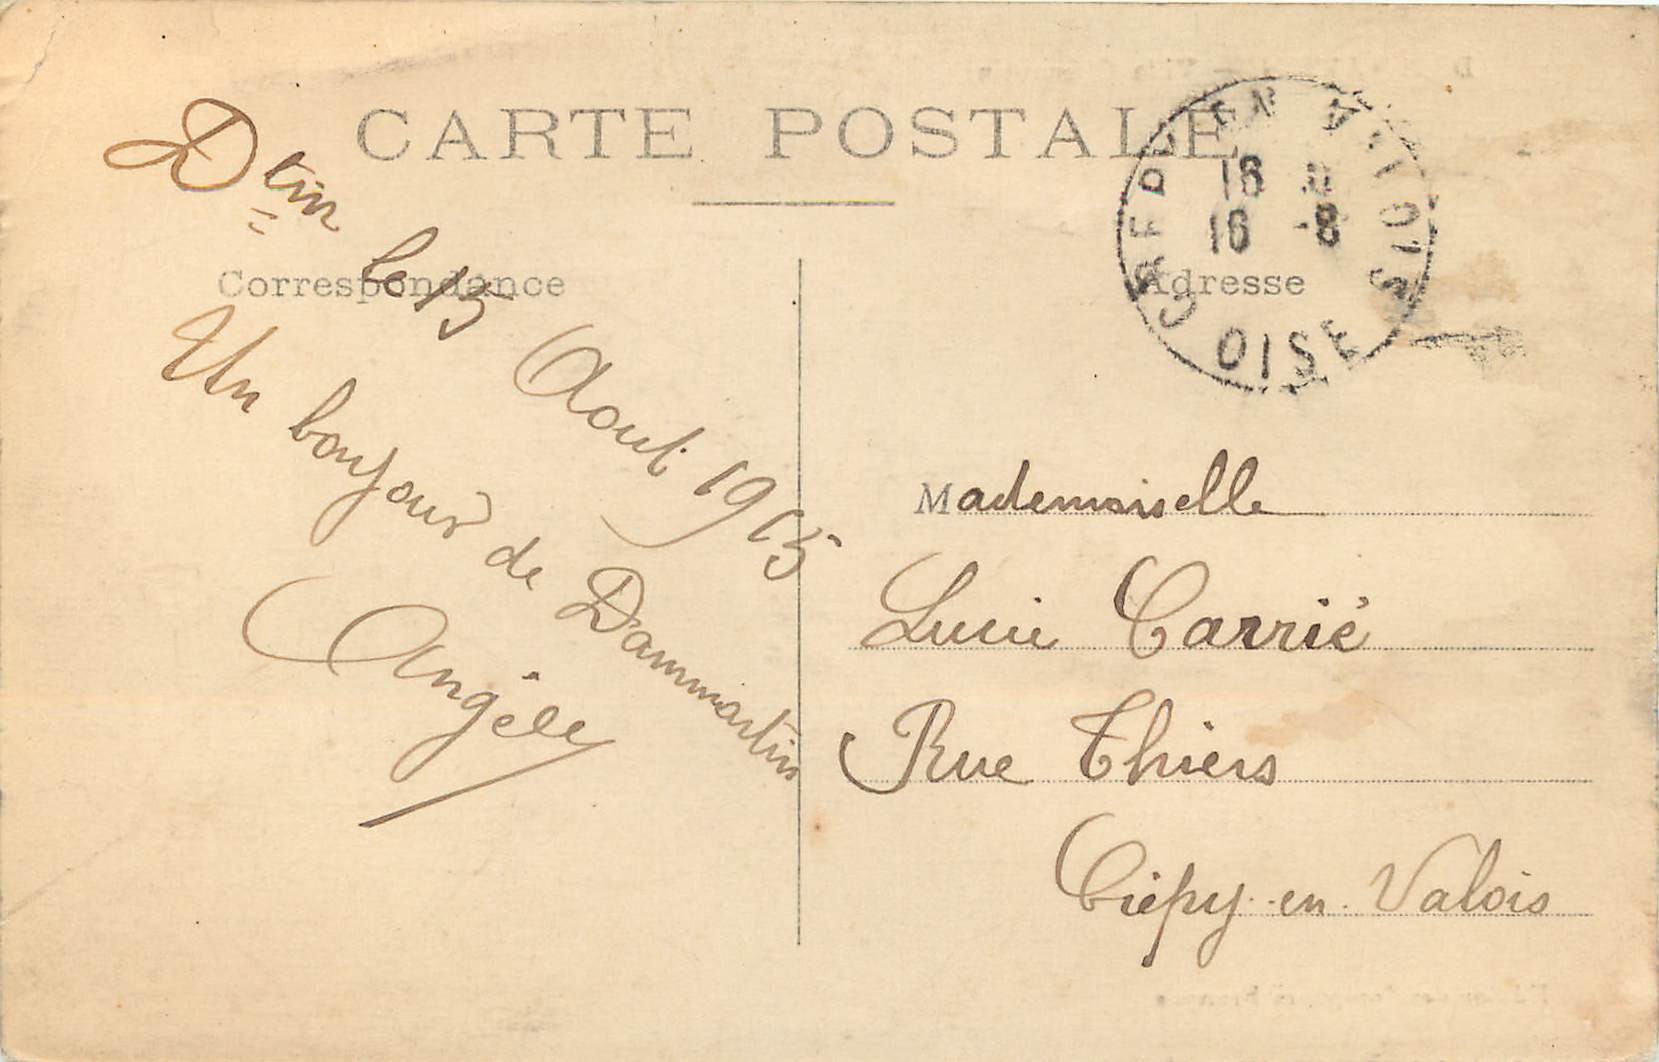 CARTE POSTALE
Correspondance
Adresse
Dtin le 15 Août 1915
Un bonjour de Dammartin
Angèle
CRÉPY EN VALOIS
16
16 -8
OISE
Mademoiselle
Lucie Carrié
Rue Thiers
Crépy-en-Valois